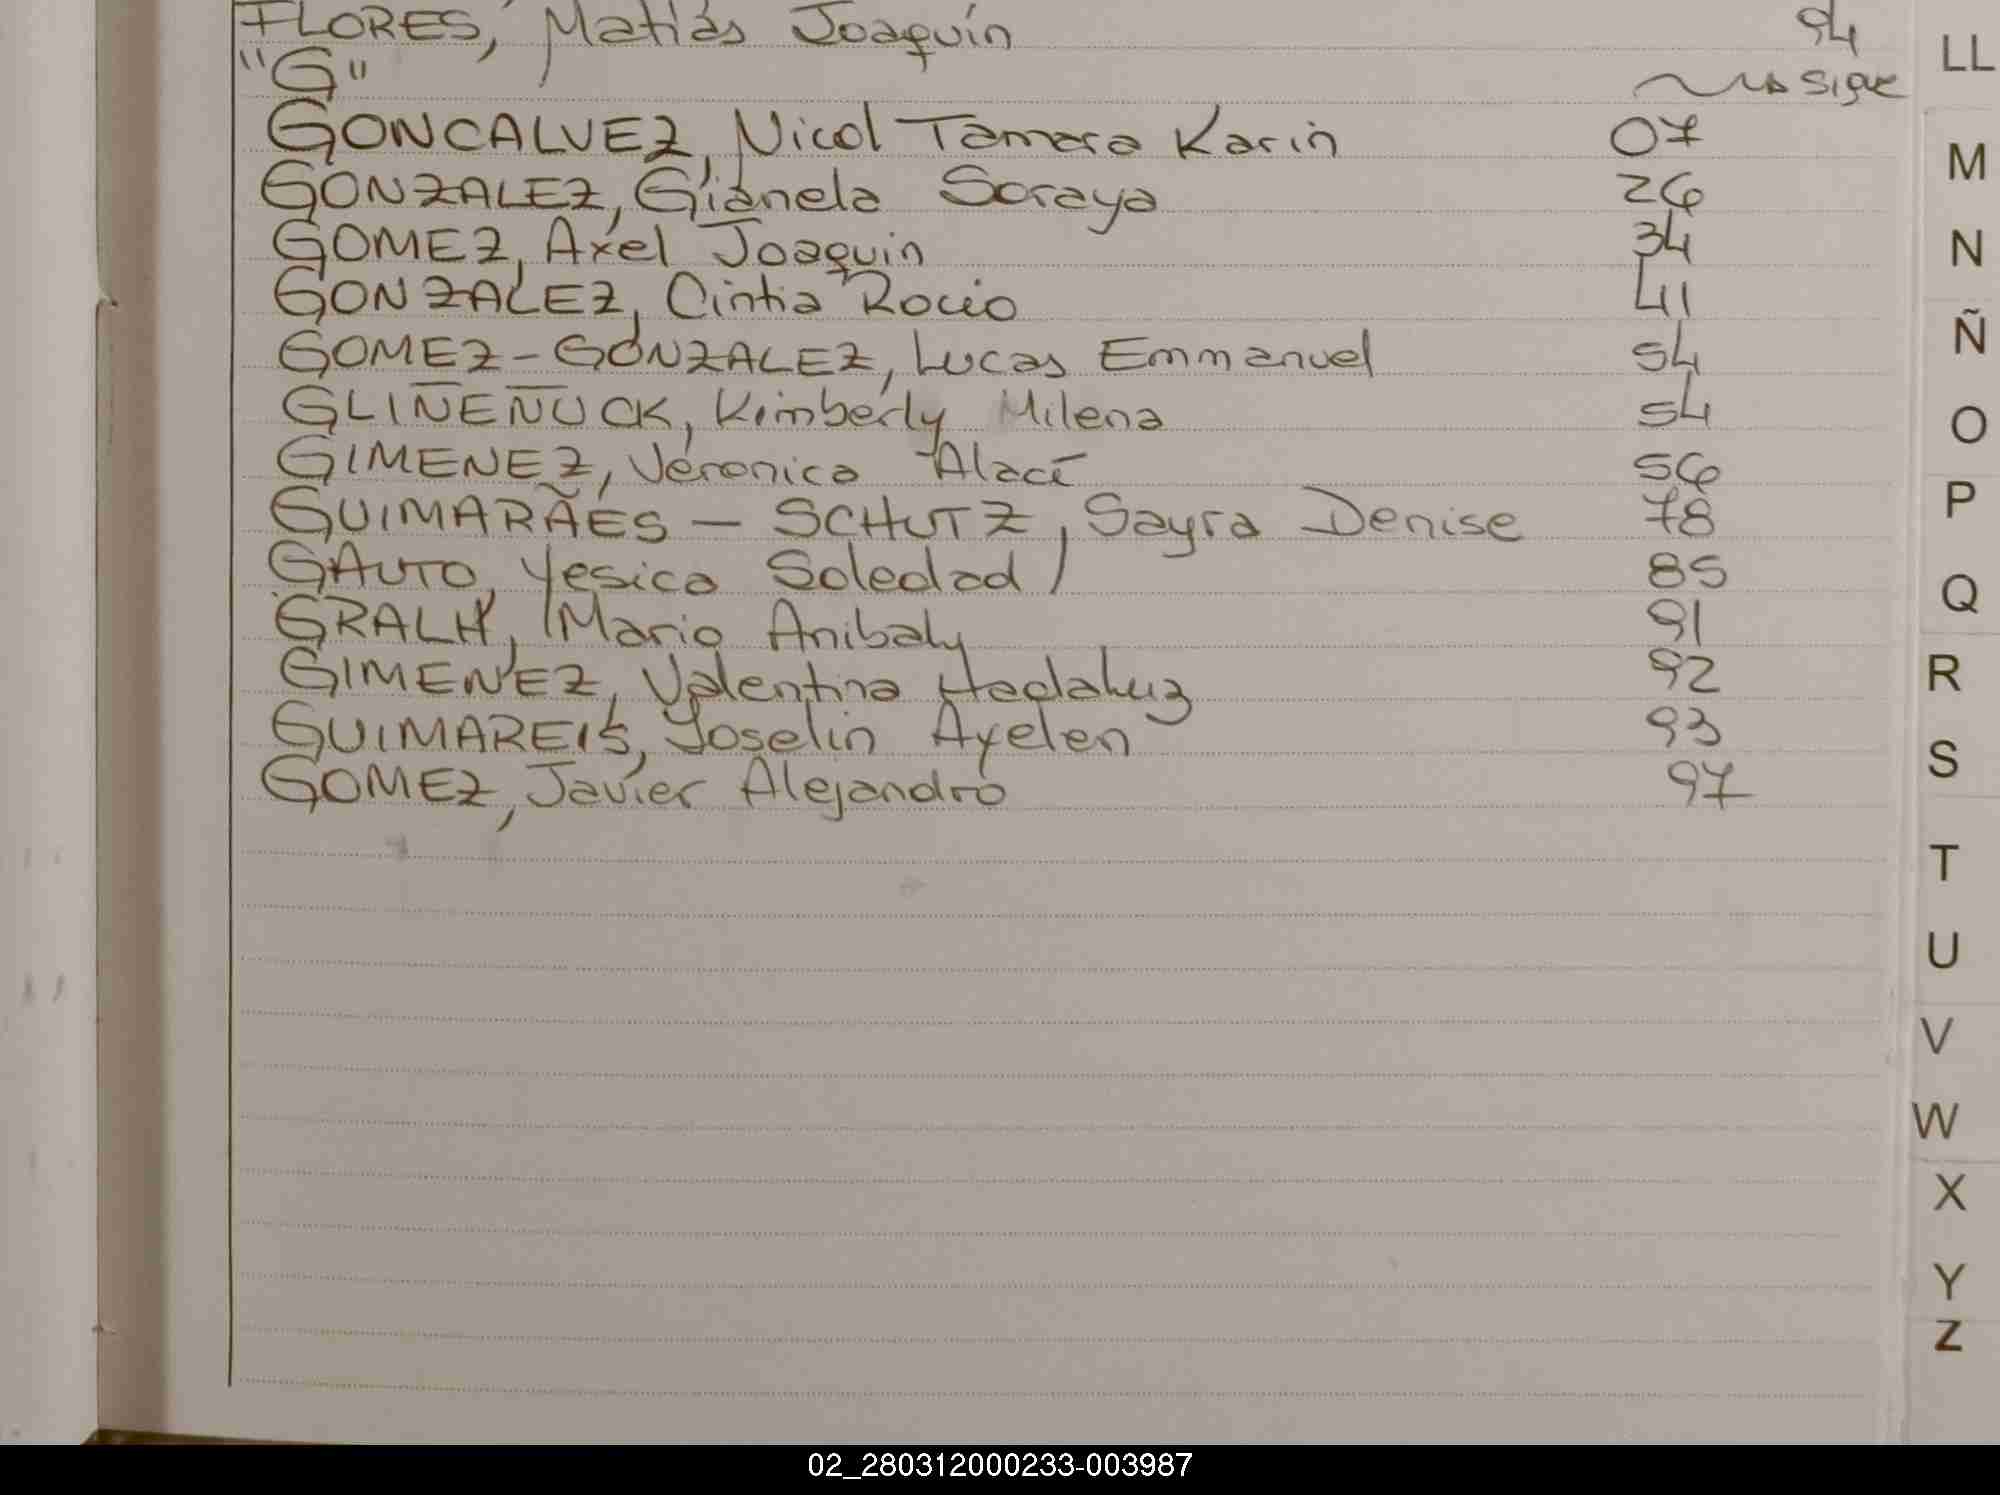 FLORES, Matías Joaquín 94
"G" sigue
GONCALVEZ, Nicol Tamara Karin 07
GONZALEZ, Gianela Soraya 26
GOMEZ, Axel Joaquin 34
GONZALEZ, Cintia Rocio 41
GOMEZ - GONZALEZ, Lucas Emmanuel 54
GLIÑEÑUCK, Kimberly Milena 54
GIMENEZ, Veronica Alací 56
GUIMARÃES - SCHUTZ, Sayra Denise 78
GAUTO, Yesica Soledad 85
GRALH, Mario Anibal 91
GIMENEZ, Valentina Hadaluz 92
GUIMAREIS, Joselin Ayelen 93
GOMEZ, Javier Alejandro 97
LL
M
N
Ñ
O
P
Q
R
S
T
U
V
W
X
Y
Z
02_280312000233-003987